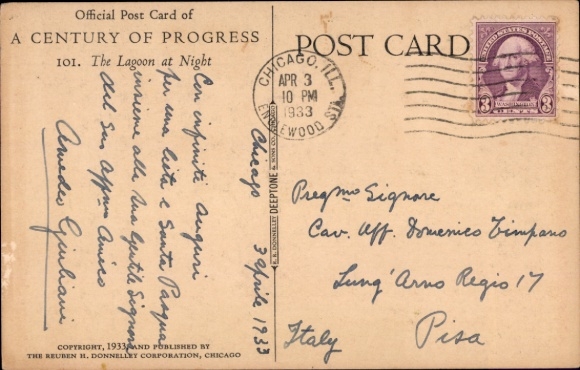 Official Post Card of
A CENTURY OF PROGRESS
101. The Lagoon at Night
POST CARD
CHICAGO, ILL.
APR 3
10 PM
1933
ENGLEWOOD STA.
UNITED STATES POSTAGE
3 WASHINGTON 3
Chicago 3 Aprile 1933
Con infiniti Auguri
per una lieta e Santa Pasqua
insieme alla Sua Gentile Signora
del Suo Affmo Amico
Amedeo Giuliani
Pregmo Signore
Cav. Uff. Domenico Timpano
Lung' Arno Regio 17
Pisa
Italy
R. R. DONNELLEY DEEPTONE & SONS CO. CHICAGO
COPYRIGHT, 1933, AND PUBLISHED BY
THE REUBEN H. DONNELLEY CORPORATION, CHICAGO